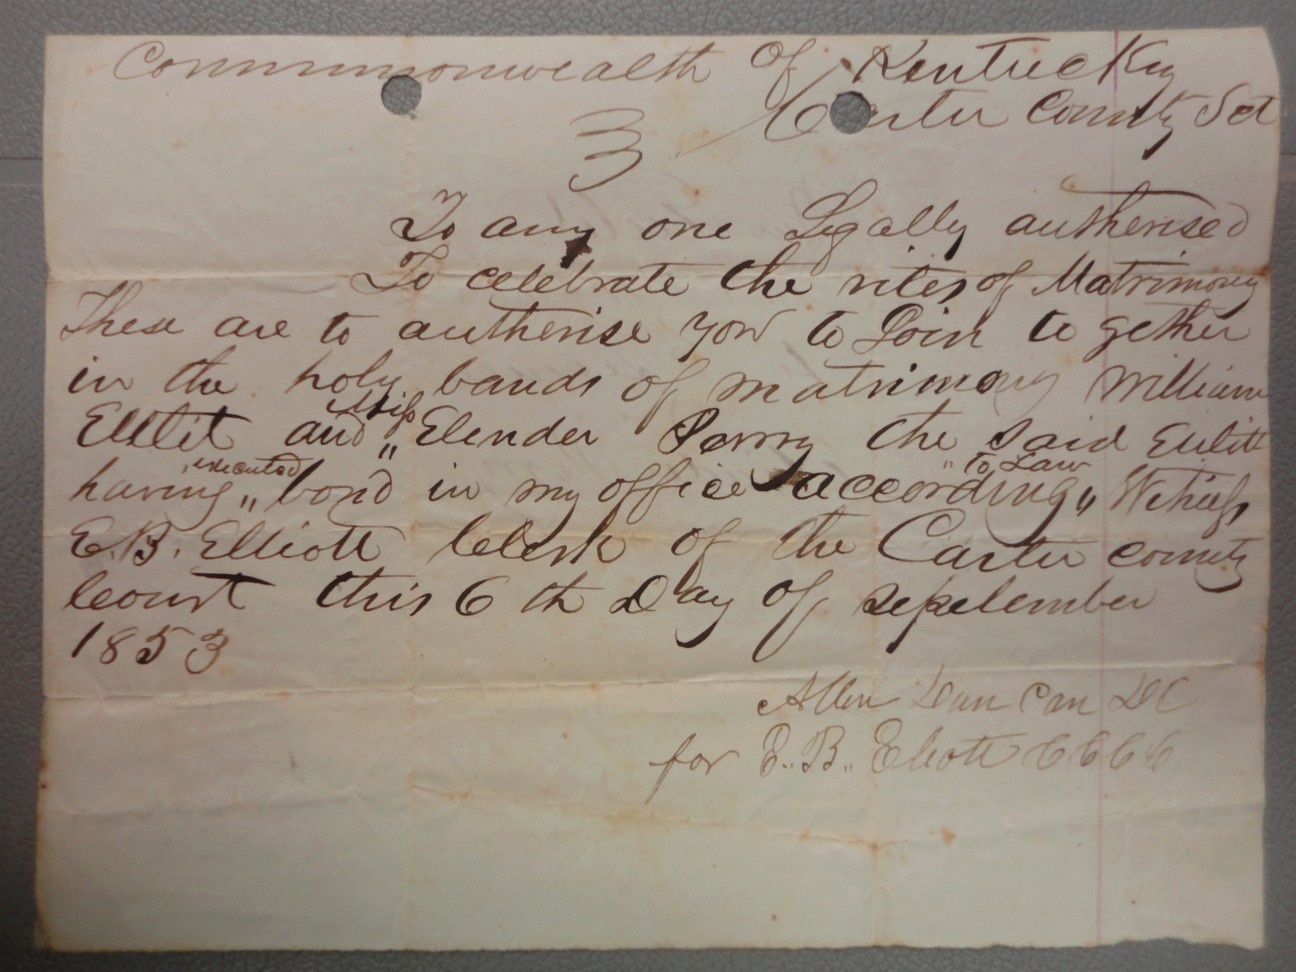 Commonwealth of Kentucky
Carter County Sct
To any one Legally autherised
To celebrate the rites of Matrimony
These are to autherise you to Join to gether
in the holy bands of matrimony William
Elltit and " Miss Elender Parry the said Eulitt
having " executed bond in my office according " to Law Witness
E. B. Elliott Clerk of the Carter county
Court this 6 th Day of sepetember
1853
Allen Dun can DC
for E. B. Eliott CCCC